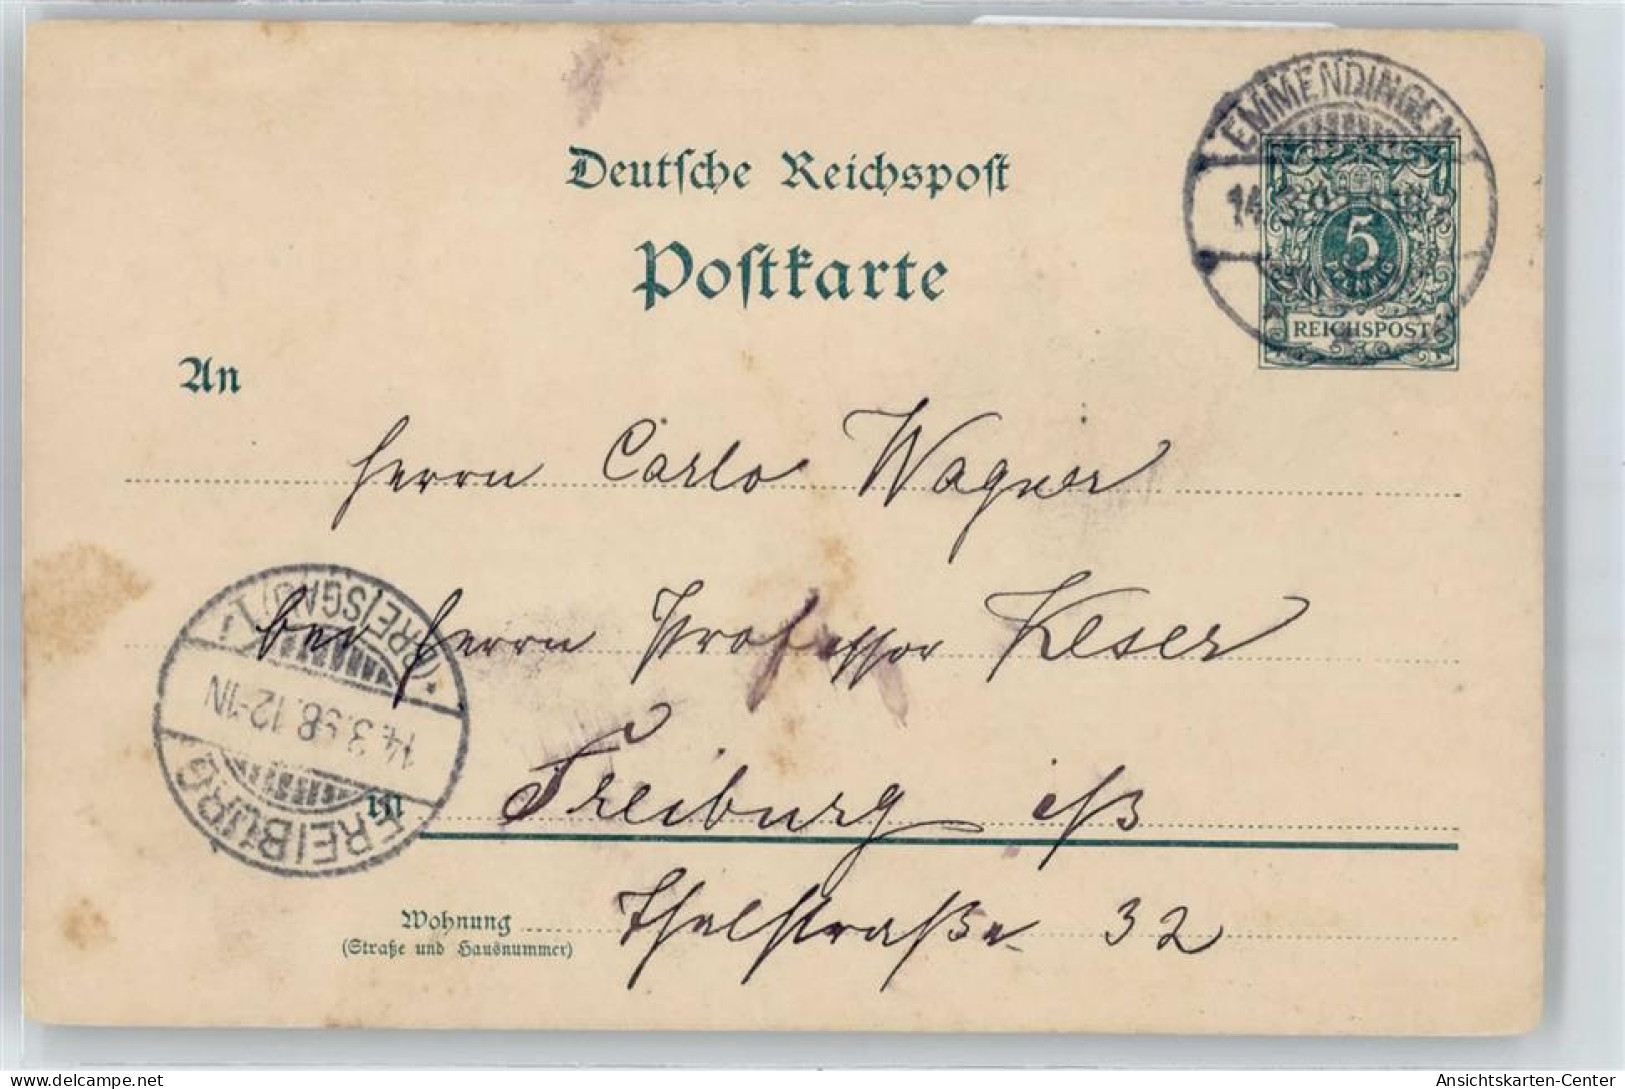 EMMENDINGEN
Deutsche Reichspost
Postkarte
5
REICHSPOST
An
Herrn Carlo Wagner
bei Herrn Professor Keser
(BREISGAU) 1
14.3.98.12-1N
FREIBURG
in Freiburg i/B
Wohnung Thalstraße 32
(Straße und Hausnummer)
Ansichtskarten-Center